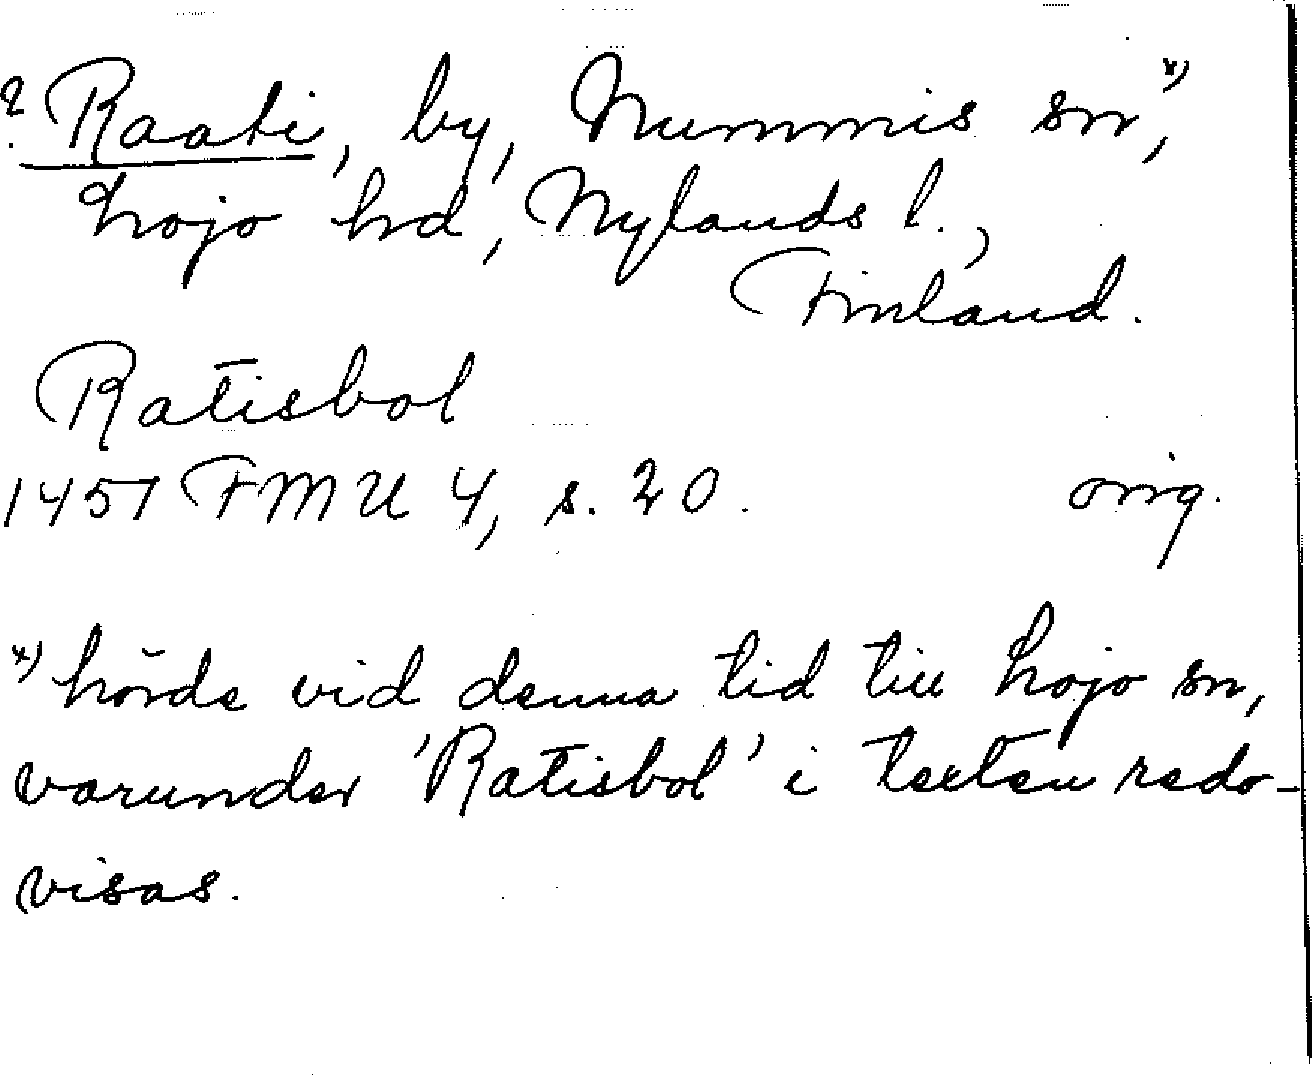 ? Raati, by, Nummis sn*),
Lojo hd, Nylands l.,
Finland.
Ratisbol
1451 FMU 4, s. 20. orig.
*) hörde vid denna tid till Lojo sn,
varunder 'Ratisbol' i texten redo-
visas.